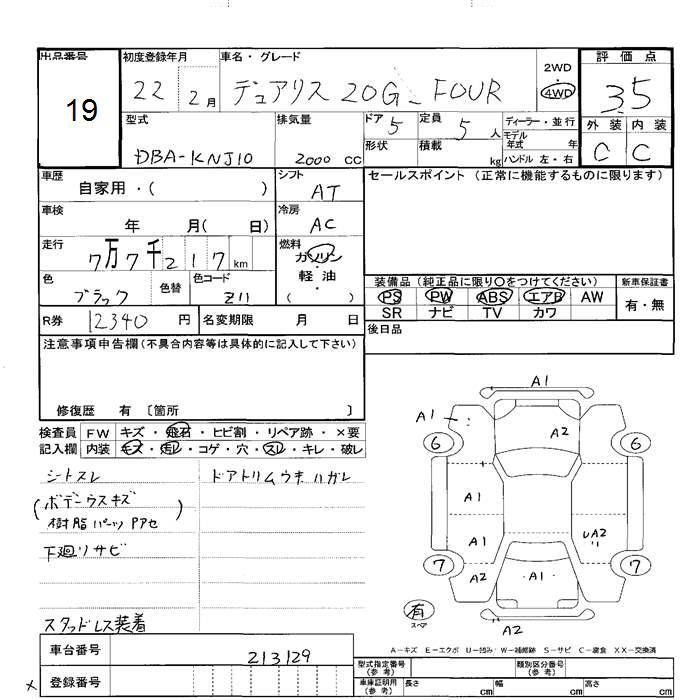 出品番号
19
初度登録年月
22 2月
車名・グレード
デュアリス 20G_FOUR
2WD
4WD
評価点
3.5
外装 内装
C C
型式
DBA-KNJ10
排気量
2000 cc
ドア 5
定員 5 人
ディーラー・並行
モデル年式 年
形状
積載 kg
ハンドル 左・右
車歴
自家用・( )
シフト
AT
セールスポイント (正常に機能するものに限ります)
車検
年 月( 日)
冷房
AC
走行
7万7千217km
燃料
ガソリン
・
軽・油
( )
色
ブラック
色替
色コード
Z11
装備品 (純正品に限り○をつけてください)
新車保証書
PS PW ABS エアB AW
SR ナビ TV カワ
有・無
R券 12340 円
名変期限 月 日
後日品
注意事項申告欄(不具合内容等は具体的に記入して下さい)
修復歴 有 〔箇所 〕
検査員 FW キズ・飛石・ヒビ割・リペア跡・×要
記入欄 内装 キズ・汚レ・コゲ・穴・スレ・キレ・破レ
シートスレ
ドアトリムウキハガレ
(ボデーウスキズ
樹脂パーツPアセ)
下廻リサビ
スタッドレス装着
A1
A1
A2
6
6
A1
A1
UA2
7
7
A2
A1
有
スペア
A2
A-キズ E-エクボ U-凹み W-補修跡 S-サビ C-腐食 XX-交換済
車台番号
213129
× 登録番号
型式指定番号
(参考)
類別区分番号
(参考)
車庫証明用
(参考)
長さ cm 幅 cm 高さ cm